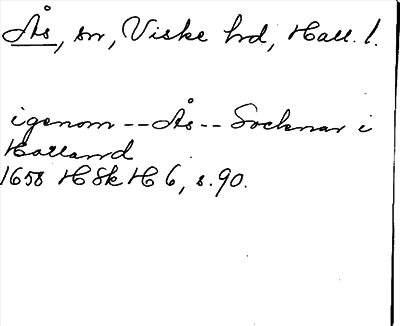 Ås, sn, Viske hd, Hall. l.
igenom -- Ås -- Socknar i
Halland
1658 HSkH 6, s. 90.